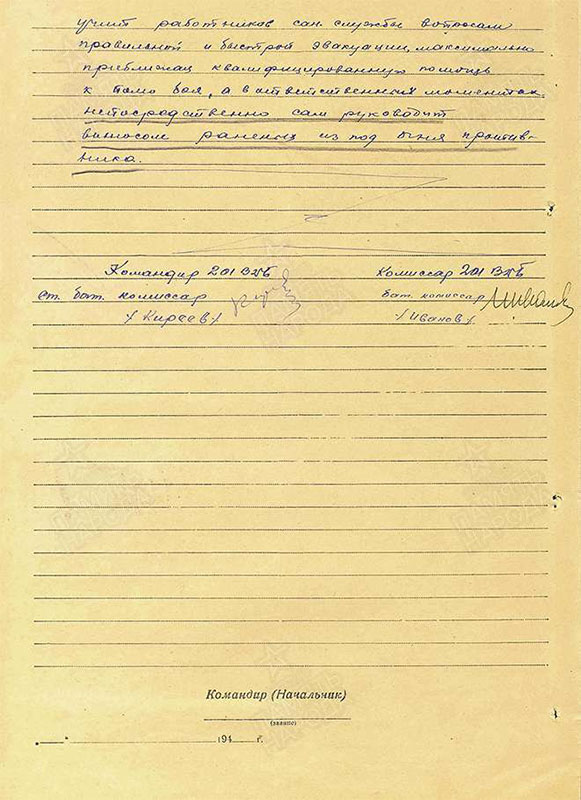 учит работников сан. службы вопросам
правильной и быстрой эвакуации, максимально
приближая квалифицированную помощь
к полю боя, а в ответственных моментах
непосредственно сам руководит
выносом раненых из под огня против-
ника.
Командир 201 ВДБ Комиссар 201 ВДБ
ст. бат. комиссар бат. комиссар
/Киреев/ /Иванов/
Командир (Начальник)
(звание)
194 г.